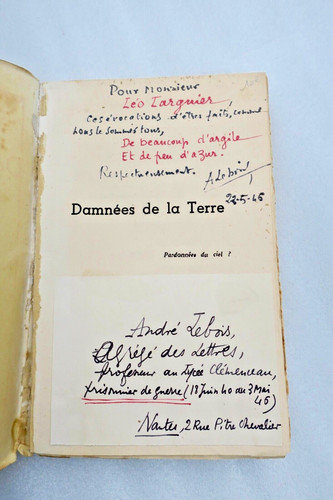 Pour Monsieur
Léo Larguier,
Ces évocations d'êtres faits, comme
nous le sommes tous,
De beaucoup d'argile
Et de peu d'azur.
Respectueusement.
A Lebois
22-5-46
Damnées de la Terre
Pardonnées du ciel ?
André Lebois,
Agrégé des Lettres,
professeur au Lycée Clémenceau,
prisonnier de guerre (18 juin 40 au 3 Mai
45)
Nantes, 2 Rue Pitre Chevalier